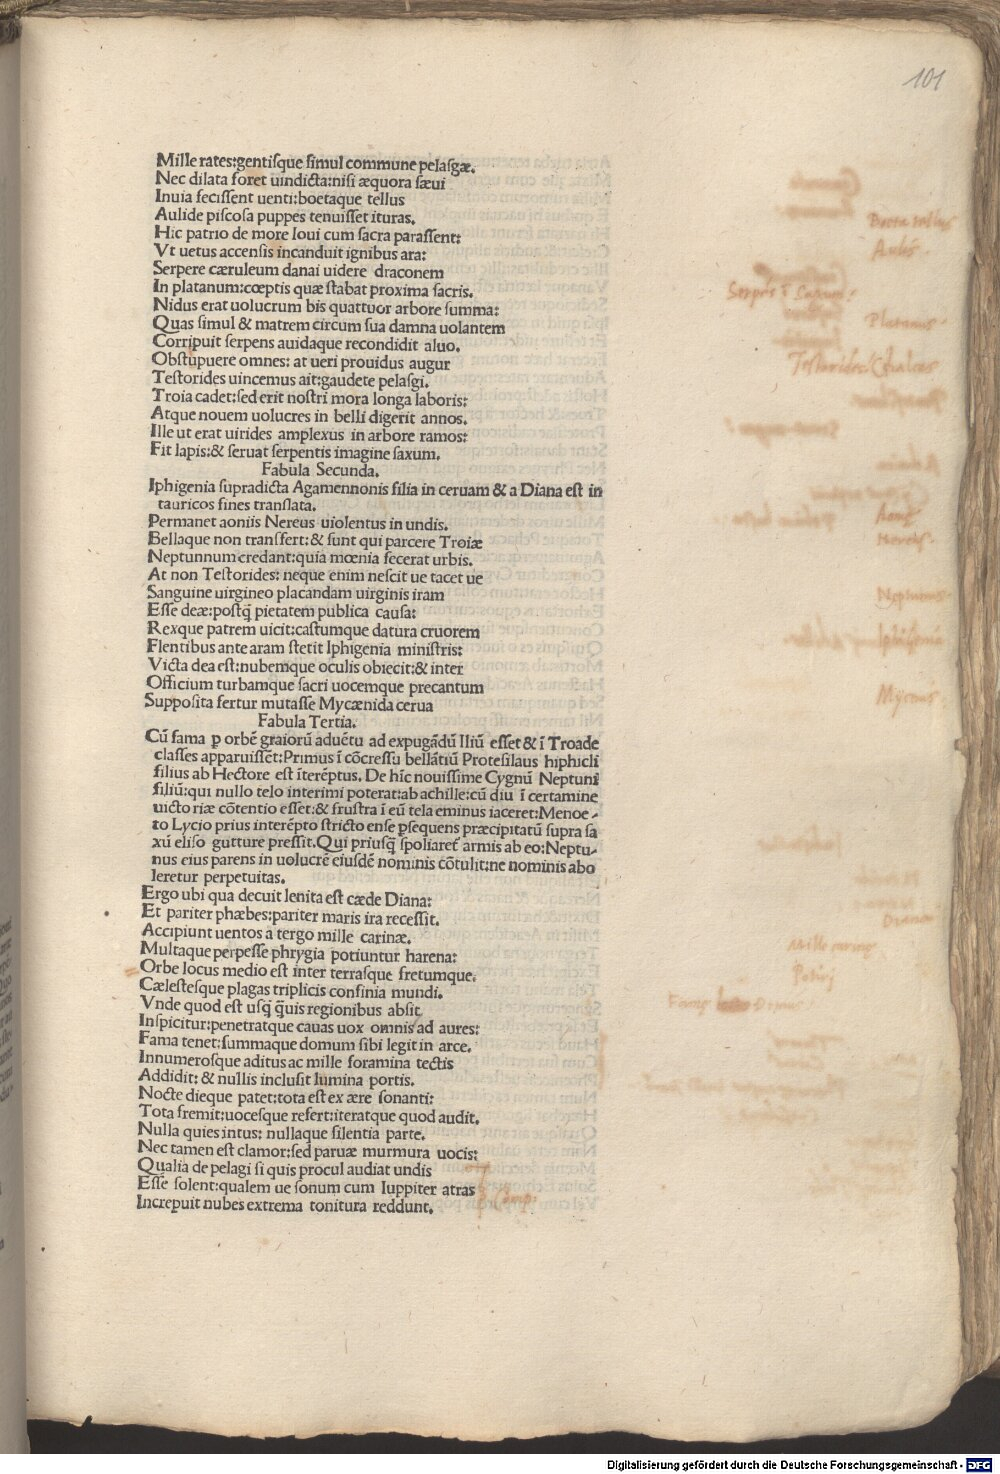 101
Mille rates:gentiſque ſimul commune pelaſgæ.
Nec dilata foret uindicta:niſi æquora ſæui
Inuia feciſſent uenti:boetaque tellus
Aulide piſcoſa puppes tenuiſſet ituras.
Hic patrio de more Ioui cum ſacra paraſſent:
Vt uetus accenſis incanduit ignibus ara:
Serpere cæruleum danai uidere draconem
In platanum:cœptis quæ ſtabat proxima ſacris.
Nidus erat uolucrum bis quattuor arbore ſumma:
Quas ſimul & matrem circum ſua damna uolantem
Corripuit ſerpens auidaque recondidit aluo.
Obſtupuere omnes: at ueri prouidus augur
Teſtorides uincemus ait:gaudete pelaſgi.
Troia cadet:ſed erit noſtri mora longa laboris:
Atque nouem uolucres in belli digerit annos.
Ille ut erat uirides amplexus in arbore ramos:
Fit lapis:& ſeruat ſerpentis imagine ſaxum.
Fabula Secunda.
Iphigenia ſupradicta Agamennonis filia in ceruam & a Diana eſt in
tauricos fines tranſlata.
Permanet aoniis Nereus uiolentus in undis.
Bellaque non tranſfert:& ſunt qui parcere Troiæ
Neptunnum credant:quia mœnia fecerat urbis.
At non Teſtorides: neque enim neſcit ue tacet ue
Sanguine uirgineo placandam uirginis iram
Eſſe deæ:poſtq̃ pietatem publica cauſa:
Rexque patrem uicit:caſtumque datura cruorem
Flentibus ante aram ſtetit Iphigenia miniſtris:
Victa dea eſt:nubemque oculis obiecit:& inter
Officium turbamque ſacri uocemque precantum
Suppoſita fertur mutaſſe Mycænida cerua
Fabula Tertia.
Cũ fama p orbẽ graiorũ aduẽtu ad expugãdũ Iliũ eſſet & ĩ Troade
claſſes apparuiſſẽt:Primus ĩ cõcreſſu bellãtiũ Proteſilaus hiphicli
filius ab Hectore eſt ĩterẽptus. De hĩc nouiſſime Cygnũ Neptuni
filiũ:qui nullo telo interimi poterat:ab achille:cũ diu ĩ certamine
uicto riæ cõtentio eſſet:& fruſtra ĩ eũ tela eminus iaceret:Menoe-
to Lycio prius interẽpto ſtricto enſe pſequens præcipitatũ ſupra ſa
xũ eliſo gutture preſſit. Qui priuſq̃ ſpoliaret̃ armis ab eo:Neptu-
nus eius parens in uolucrẽ eiuſdẽ nominis cõtulit:ne nominis abo
leretur perpetuitas.
Ergo ubi qua decuit lenita eſt cæde Diana:
Et pariter phæbes:pariter maris ira receſſit.
Accipiunt uentos a tergo mille carinæ.
Multaque perpeſſe phrygia potiuntur harena:
Orbe locus medio eſt inter terraſque fretumque.
Cæleſteſque plagas triplicis confinia mundi.
Vnde quod eſt uſq̃ q̃uis regionibus abſit
Inſpicitur:penetratque cauas uox omnis ad aures:
Fama tenet:ſummaque domum ſibi legit in arce.
Innumeroſque aditus ac mille foramina tectis
Addidit: & nullis incluſit lumina portis.
Nocte dieque patet:tota eſt ex ære ſonanti:
Tota fremit:uoceſque refert:iteratque quod audit.
Nulla quies intus: nullaque ſilentia parte.
Nec tamen eſt clamor:ſed paruæ murmura uocis:
Qualia de pelagi ſi quis procul audiat undis
Eſſe ſolent:qualem ue ſonum cum Iuppiter atras
Increpuit nubes extrema tonitura reddunt.
Aulis
Platanus
Nereus
Neptunus
Iphigenia
Diana
Comp:
Digitalisierung gefördert durch die Deutsche Forschungsgemeinschaft - DFG